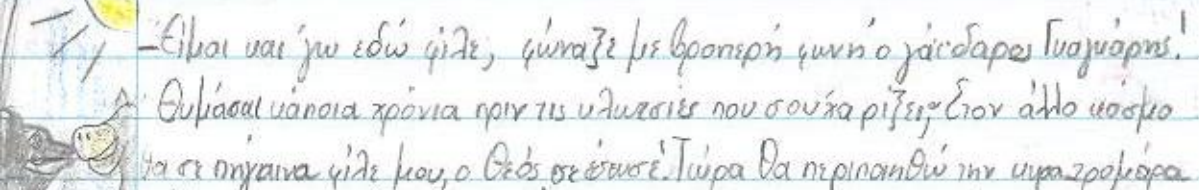 -Είμαι και 'γω εδώ φίλε, φώναξε με βροντερή φωνή ο γάιδαρος Γκαγκάρης!
Θυμάσαι κάποια χρόνια πριν τις κλωτσιές που σου χάριζες; Στον άλλο κόσμο
θα σε πήγαινα φίλε μου, ο Θεός σε έσωσε. Τώρα θα περιποιηθώ την κυρα